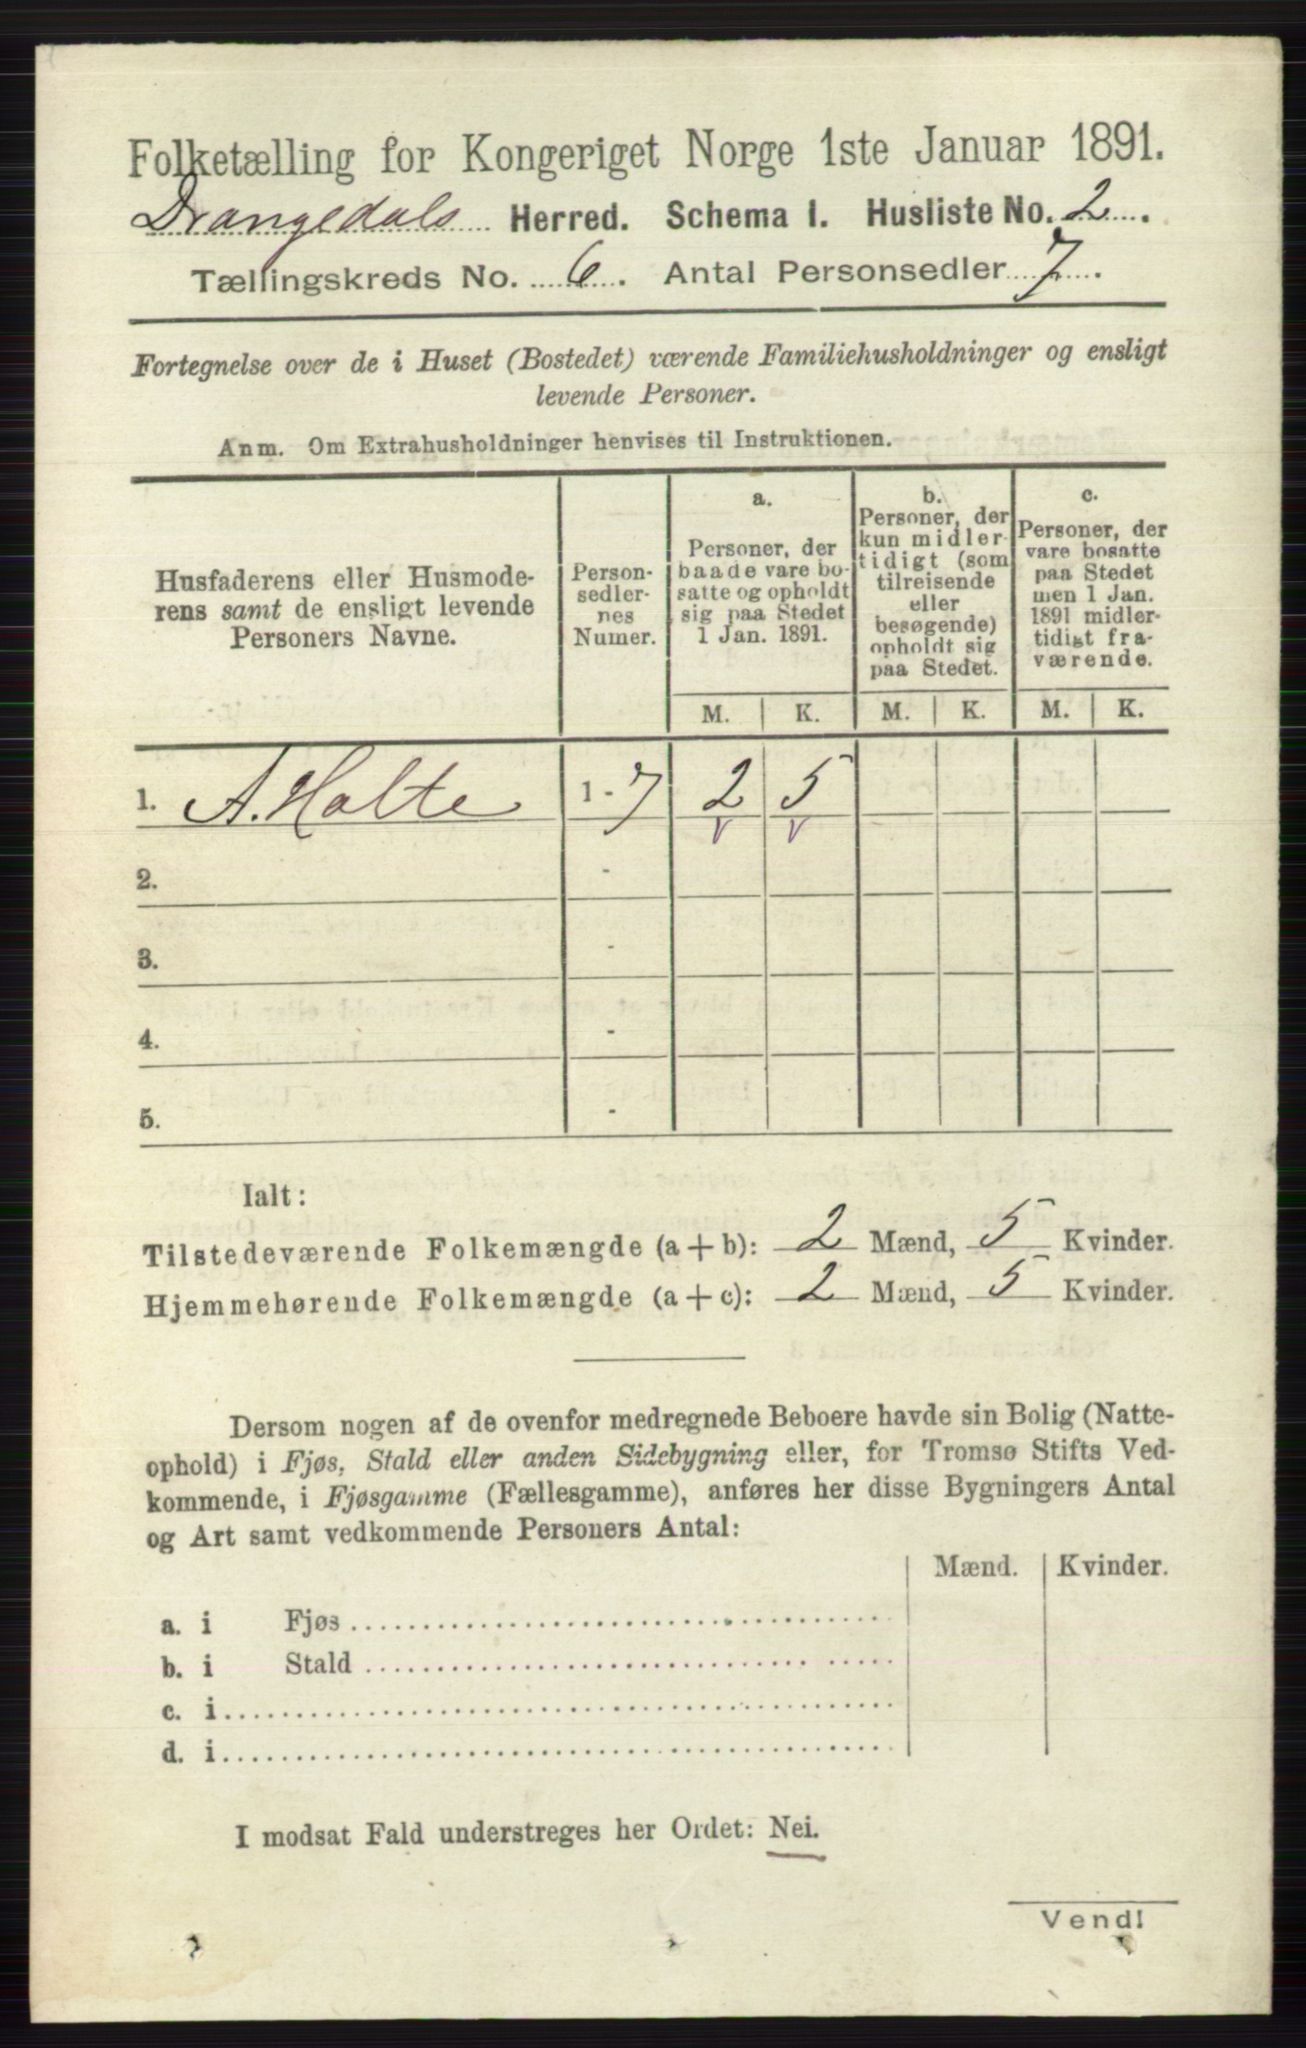 Folketælling for Kongeriget Norge 1ste Januar 1891.
Drangedals Herred. Schema I. Husliste No. 2.
Tællingskreds No. 6. Antal Personsedler 7.
Fortegnelse over de i Huset (Bostedet) værende Familiehusholdninger og ensligt
levende Personer.
Anm. Om Extrahusholdninger henvises til Instruktionen.
Husfaderens eller Husmode-
rens samt de ensligt levende
Personers Navne.
Person-
sedler-
nes
Numer.
a.
Personer, der
baade vare bo-
satte og opholdt
sig paa Stedet
1 Jan. 1891.
b.
Personer, der
kun midler-
tidigt (som
tilreisende
eller
besøgende)
opholdt sig
paa Stedet.
c.
Personer, der
vare bosatte
paa Stedet
men 1 Jan.
1891 midler-
tidigt fra-
værende.
M. K. M. K. M. K.
1. A. Holte 1-7 2 5
v v
2. -
3. -
4. -
5. -
Ialt:
Tilstedeværende Folkemængde (a + b): 2 Mænd, 5 Kvinder.
Hjemmehørende Folkemængde (a + c): 2 Mænd, 5 Kvinder.
Dersom nogen af de ovenfor medregnede Beboere havde sin Bolig (Natte-
ophold) i Fjøs, Stald eller anden Sidebygning eller, for Tromsø Stifts Ved-
kommende, i Fjøsgamme (Fællesgamme), anføres her disse Bygningers Antal
og Art samt vedkommende Personers Antal:
Mænd. Kvinder.
a. i Fjøs
b. i Stald
c. i
d. i
I modsat Fald understreges her Ordet: Nei.
Vend!